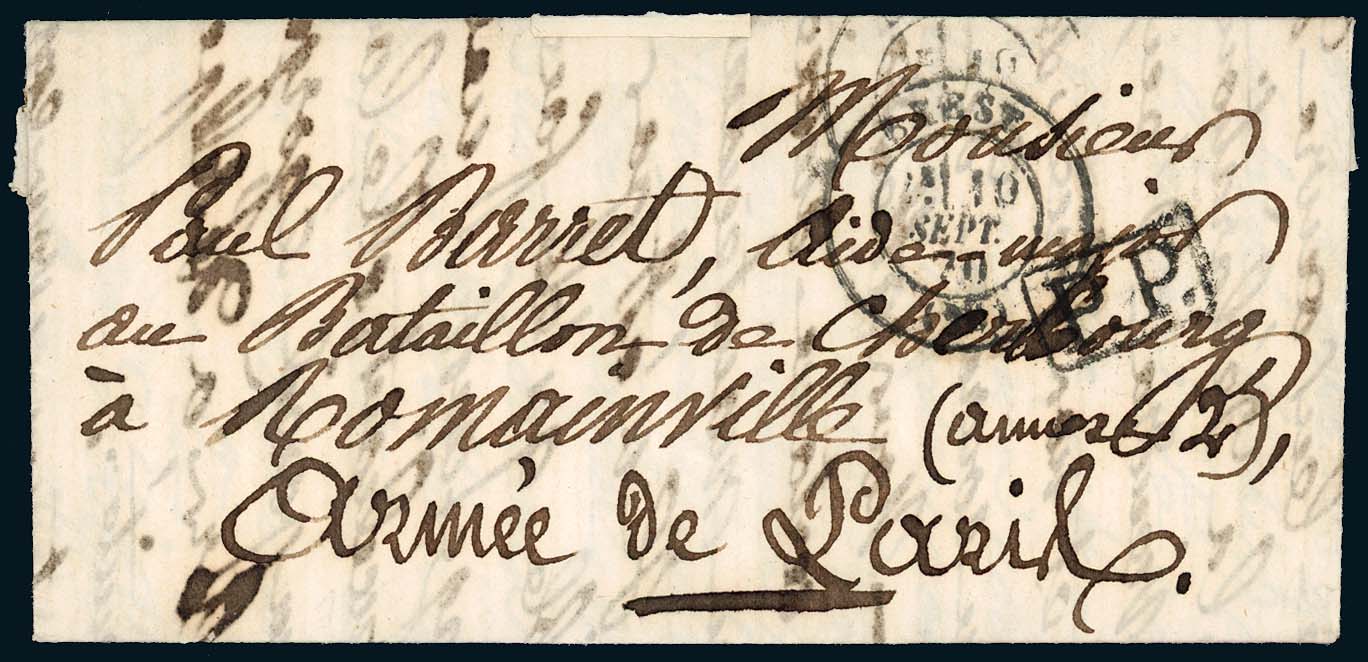 Monsieur
Paul Barret, Aide-major
au Bataillon de Cherbourg
à Romainville (annexe B),
Armée de Paris.
BREST
10
SEPT.
70
P.P.
10